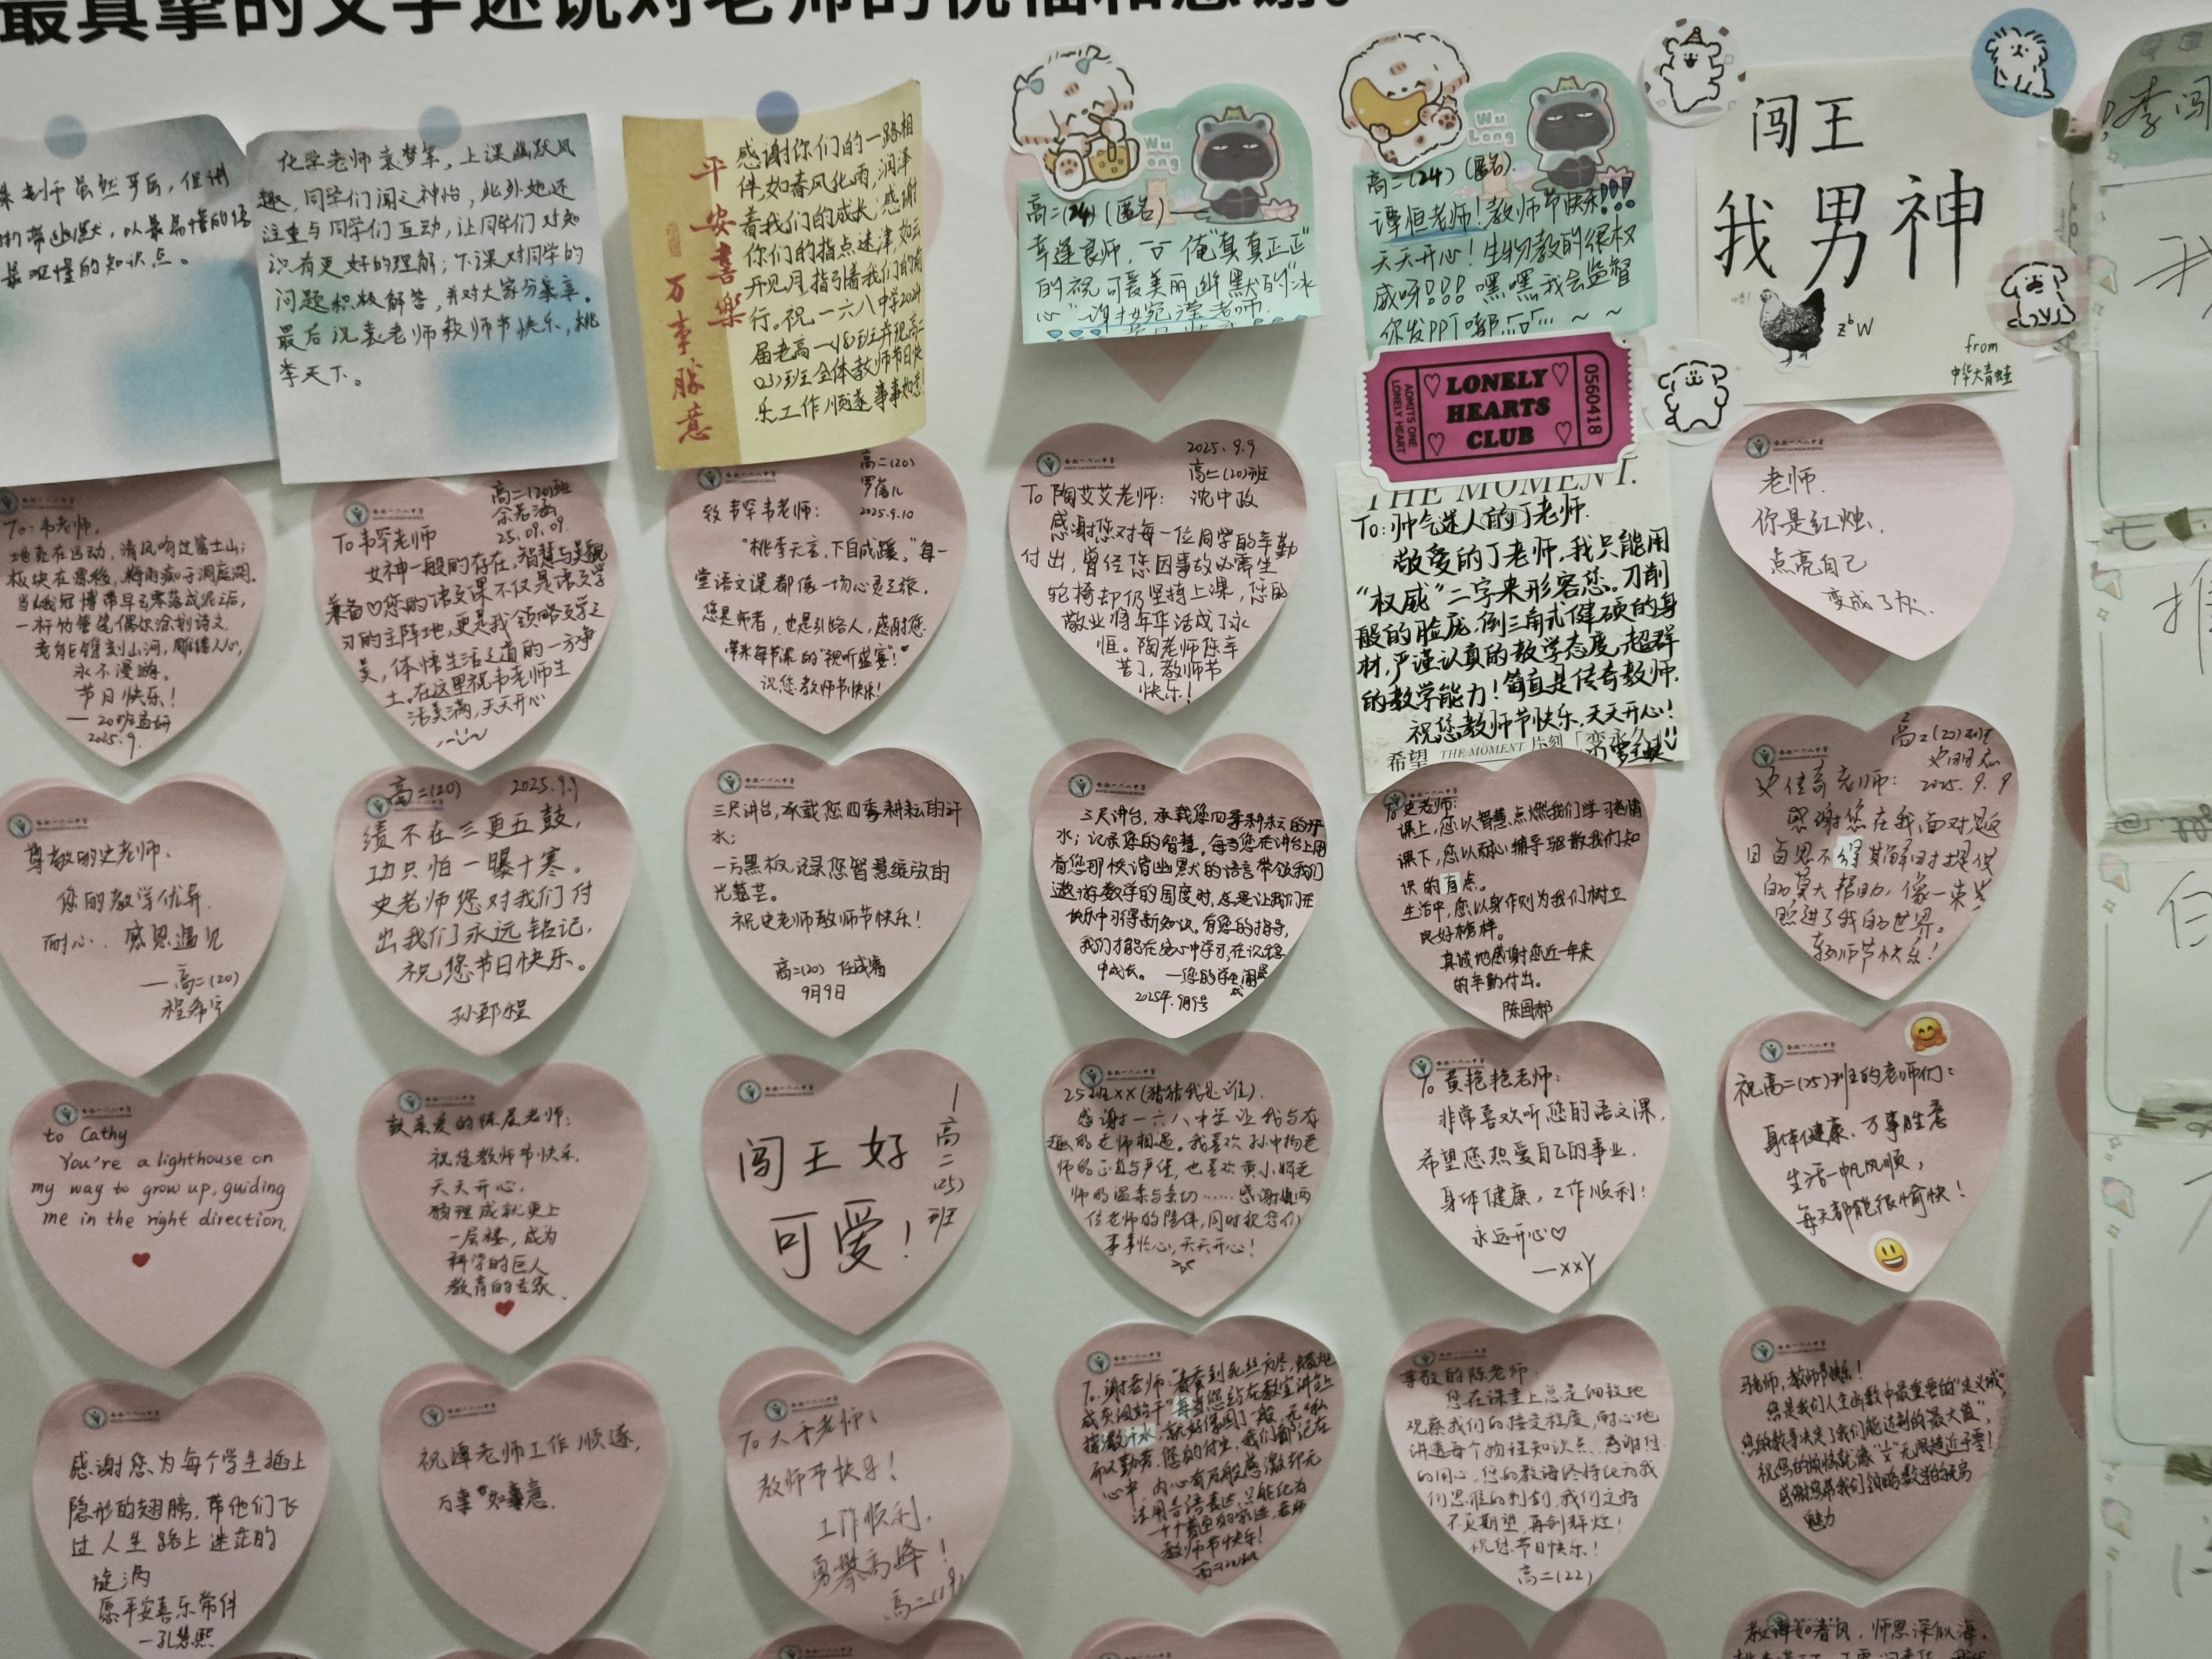 最真挚的文字述说对老师的祝福和感谢。
老师虽然平后，但讲
带幽默，以最易懂的语
最难懂的知识点。
化学老师袁梦军，上课幽默风
趣，同学们闻之神怡，此外她还
注重与同学们互动，让同学们对知
识有更好的理解；下课对同学的
问题积极解答，并对大家分享。
最后祝袁老师教师节快乐，桃
李天下。
平安喜樂
万事胜意
感谢你们的一路相
伴，如春风化雨，润泽
着我们的成长；感谢
你们的指点迷津，如云
开见月，指引着我们的前
行。祝一六八中学2024
届老高一(18)班并现高二
(23)班全体教师节日快
乐工作顺遂事事如意！
Wu Long
高二(24)(匿名)
幸逢良师， 俺"真真正正"
的祝可爱美丽幽默的"冰
心"
老师
Wu Long
高二(24)(匿名)
谭恒老师！教师节快乐!!!
天天开心！生物教的很权
威呀!!! 嘿嘿我会监督
你发PPT嘟
LONELY
HEARTS
CLUB
ADMITS ONE
LONELY HEART
0560418
闯王
我男神
from
中华大青蛙
To:韦老师，
地壳在运动，清风吻过富士山；
板块在漂移，梅雨痴于洞庭湖。
一杆竹管笔偶尔涂划诗文
竟能镌刻山河，雕镂人心，
永不漫漶。
节日快乐！
2025.9.
高二(20)班
余若涵
25.09.09.
To韦罕老师
女神一般的存在，智慧与美貌
兼备♡您的语文课不仅是语文学
习的主阵地，更是我领略文学之
美，体悟生活之道的一方净
土。在这里祝韦老师生
活美满，天天开心
高二(20)
2025.9.10
致韦罕韦老师：
"桃李不言，下自成蹊。"每一
堂语文课都像一场心灵之旅，
您是师者，也是引路人，感谢您
带来每节课的"视听盛宴"！
祝您教师节快乐！
2025.9.9
高二(20)班
沈中政
To陶艾艾老师：
感谢您对每一位同学的辛勤
付出，曾经您因事故必需坐
轮椅却仍坚持上课，您的
敬业将年华活成了永
恒。陶老师您辛
苦了，教师节
快乐！
THE MOMENT.
To:帅气迷人的丁老师.
敬爱的丁老师，我只能用
"权威"二字来形容您。刀削
般的脸庞，倒三角式健硕的身
材，严谨认真的教学态度，超群
的教学能力！简直是传奇教师.
祝您教师节快乐，天天开心！
希望 THE MOMENT 片刻
老师.
你是红烛，
点亮自己
变成了灰.
尊敬的史老师.
您的教学优异.
耐心. 感恩遇见
——高二(20)
程希宇
高二(20) 2025.9.9
绩不在三更五鼓，
功只怕一曝十寒。
史老师您对我们付
出我们永远铭记，
祝您节日快乐。
孙郅程
三尺讲台，承载您四季耕耘的汗
水；
一方黑板，记录您智慧绽放的
光芒。
祝史老师教师节快乐！
高二(20)
9月9日
三尺讲台，承载您四季耕耘的汗
水；记录您的智慧，每当您在讲台上用
着您那诙谐幽默的语言带领我们
遨游数学的国度时，总是让我们在
快乐中习得新知识。有您的指导，
我们才能在安心中学习，在沉稳
中成长。
2025年.9月9号
To史老师：
课上，您以智慧点燃我们学习热情
课下，您以耐心辅导驱散我们知
识的盲点。
生活中，您以身作则为我们树立
良好榜样。
真诚地感谢您近一年来
的辛勤付出。
高二(20)班
2025.9.9
史佳奇老师：
感谢您在我面对题
目百思不得其解时提供
的莫大帮助，像一束光
照进了我的世界。
教师节快乐！
to Cathy
You're a lighthouse on
my way to grow up, guiding
me in the right direction,
致亲爱的陈晨老师：
祝您教师节快乐，
天天开心，
物理成就更上
一层楼，成为
科学的巨人
教育的专家
闯王好
可爱！
高二(25)班
25班XX(猜猜我是谁)
感谢一六八中学让我与有
趣的老师相遇。我喜欢孙中构老
师的正直与严佳，也喜欢黄小娟老
师的温柔与亲切……感谢这两
位老师的陪伴，同时祝您们
事事忺心，天天开心！
To黄艳艳老师：
非常喜欢听您的语文课，
希望您热爱自己的事业，
身体健康，工作顺利！
永远开心♡
—XXY
祝高二(25)班的老师们：
身体健康、万事胜意
生活一帆风顺，
每天都能很愉快！
感谢您为每个学生插上
隐形的翅膀，带他们飞
过人生路上迷茫的
旋涡
愿平安喜乐常伴
—孔慧熙
祝谭老师工作顺遂，
万事如意.
To大于老师：
教师节快乐！
工作顺利，
勇攀高峰！
高二(19)
To谢老师："春蚕到死丝方尽，蜡炬
成灰泪始干"每当您站在教室讲台上
挥洒汗水，就好像园丁一般，无私
而又勤劳，您的付出，我们都记在
心中，内心有万般感激却无
法用言语表达，只能化为
教师节快乐！
尊敬的陈老师：
您在课堂上总是细致地
观察我们的接受程度，耐心地
讲透每个物理知识点。感谢您
的用心，您的教诲终将化为我
们思维的利剑，我们定将
不负期望，再创辉煌！
祝您节日快乐！
高二(22)
马老师，教师节快乐！
您是我们人生函数中最重要的"定义域"，
您的教导决定了我们能达到的最大值，
祝您的烦恼就像"1/x"无限趋近于零！
感谢您带我们领略数学的无穷
魅力
教诲如春风，师恩深似海。